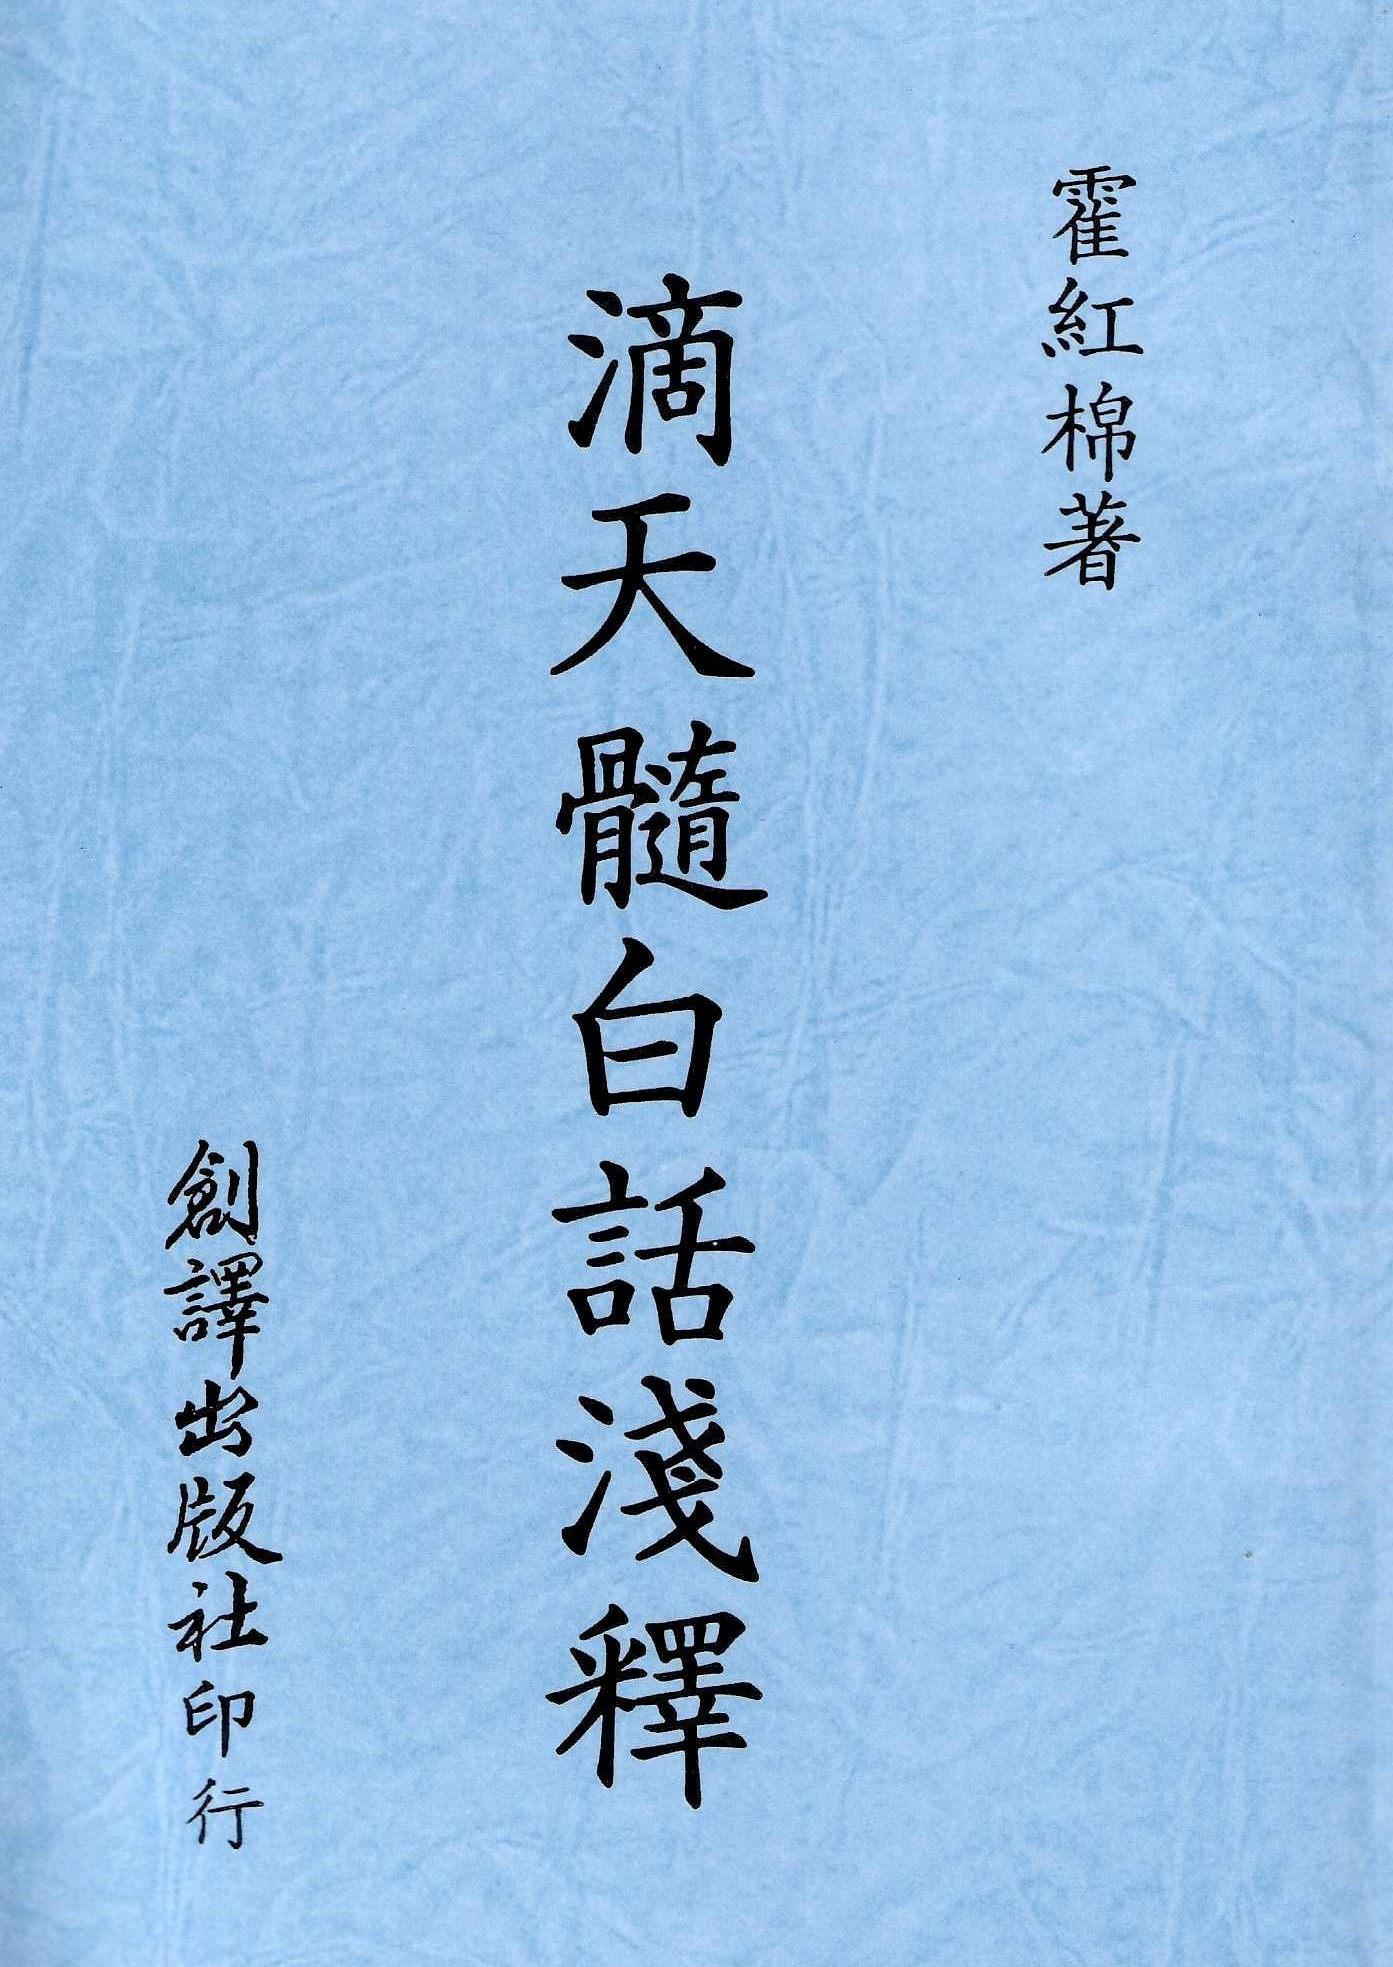 霍紅棉著
滴天髓白話淺釋
創譯出版社印行